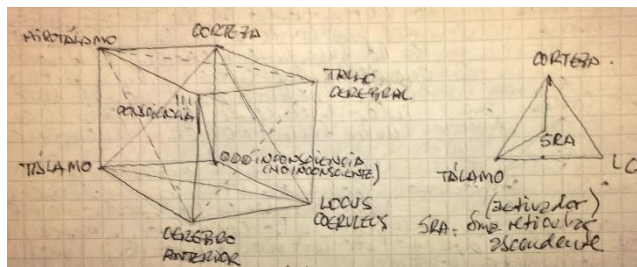 HIPOTÁLAMO
CORTEZA
TALLO
CEREBRAL
CONSCIENCIA
TÁLAMO
INCONSCIENCIA
(NO INCONSCIENTE)
LOCUS
COERULEUS
CEREBRO
ANTERIOR
CORTEZA
SRA
TÁLAMO
LC
(activador)
SRA: reticular
ascendente